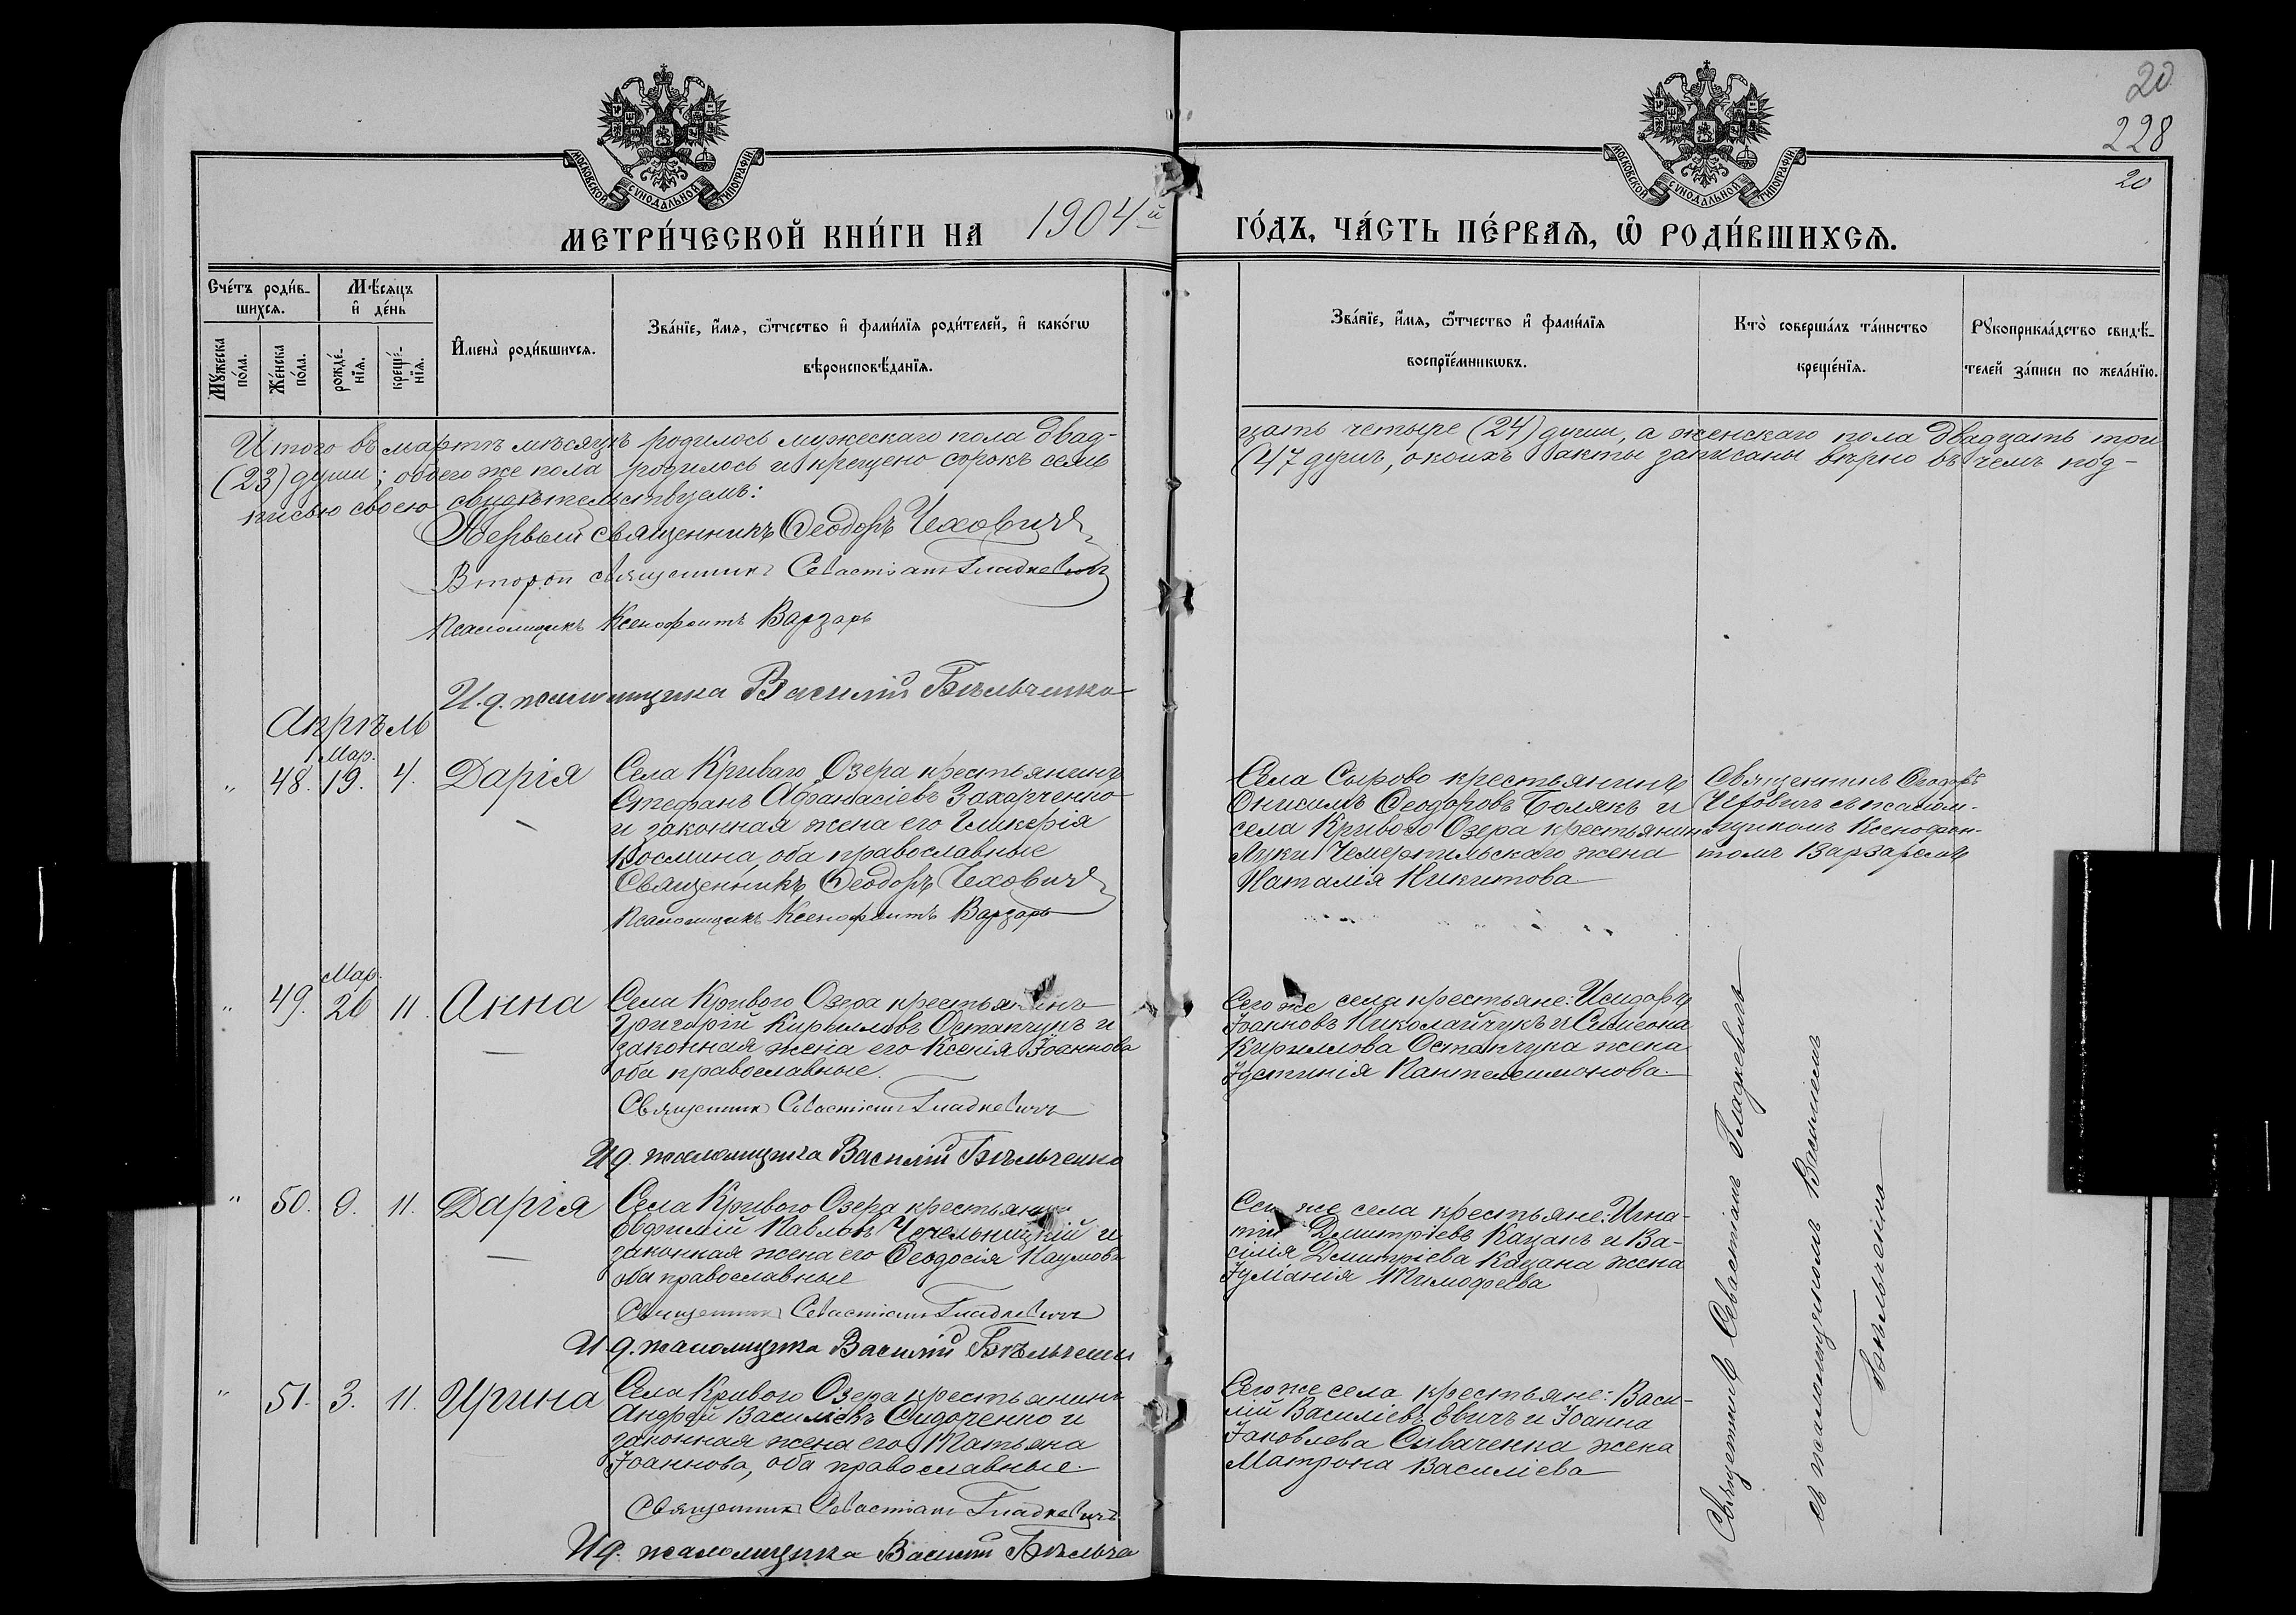 20
228
20
МОСКОВСКОЙ СѴНОДАЛЬНОЙ ТИПОГРАФІИ.
МОСКОВСКОЙ СѴНОДАЛЬНОЙ ТИПОГРАФІИ.
МЕТРИ́ЧЕСКОЙ КНИ́ГИ НА 1904й
ГО́ДЪ, ЧА́СТЬ ПЕ́РВАѦ, Ѡ РОДИ́ВШИХСѦ.
Сче́тъ роди́в-
шихсѧ.
Мѣ́сѧцъ
и҆ де́нь
Мꙋ́жеска
по́ла.
Же́нска
по́ла.
рожде́-
нїѧ.
креще́-
нїѧ.
И҆мена̀ роди́вшихсѧ.
Зва́нїе, и҆́мѧ, ѻ҆́тчество и҆ фами́лїѧ роди́телей, и҆ како́гѡ
вѣроисповѣ́данїѧ.
Зва́нїе, и҆́мѧ, ѻ҆́тчество и҆ фами́лїѧ
воспрїе́мникѡвъ.
Кто̀ соверша́лъ та́инство
креще́нїѧ.
Рꙋкоприкла́дство свидѣ́-
телей за́писи по жела́нїю.
Итого въ мартѣ мѣсяцѣ родилось мужескаго пола двад-
цать четыре (24) души, а женскаго пола двадцать три
(23) души; обоего же пола родилось и крещено сорокъ семь
(47 душъ, о коихъ акты записаны вѣрно въ чемъ под-
писью своею свидѣтельствуемъ:
Первый священникъ Ѳеодоръ Чеховичъ
Второй священникъ Севастіанъ Гладкевичъ
Псаломщикъ Ксенофонтъ Варзарь
И. д. псаломщика Василій Бѣльченко
Апрѣль
Мар.
" 48. 19. 4. Дарія
Села Криваго Озера крестьянинъ
Стефанъ Аѳанасіевъ Захарченко
и законная жена его Гликерія
Космина, оба православные
Священникъ Ѳеодоръ Чеховичъ
Псаломщикъ Ксенофонтъ Варзарь
Села Сырово крестьянинъ
Онисимъ Ѳеодоровъ Болякъ и
села Кривого Озера крестьянина
Луки Чемертильскаго жена
Наталія Никитова
Священникъ Ѳеодоръ
Чеховичъ съ псалом-
щикомъ Ксенофон-
томъ Варзаремъ
Мар.
" 49. 26 11. Анна
Села Кривого Озера крестьянинъ
Григорій Кирилловъ Остапчукъ и
законная жена его Ксенія Іоаннова
оба православные.
Священникъ Севастіанъ Гладкевичъ
И д. псаломщика Василій Бѣльченко
Сего же села крестьяне: Исидоръ
Іоанновъ Николайчукъ и Симеона
Кириллова Остапчука жена
Іустинія Пантелеимонова.
" 50. 9. 11. Дарія
Села Кривого Озера крестьянинъ
Евфимій Павловъ Чечельницкій и
законная жена его Ѳеодосія Наумова
оба православные
Священникъ Севастіанъ Гладкевичъ
И д. псаломщика Василій Бѣльченко
Сего же села крестьяне: Игна-
тій Димитріевъ Казанъ и Ва-
силія Димитріева Казана жена
Іуліанія Тимофеева
" 51. 3. 11. Ирина
Села Кривого Озера крестьянинъ
Андрей Василіевъ Сидоренко и
законная жена его Татьяна
Іоаннова, оба православные.
Священникъ Севастіанъ Гладкевичъ
И д. псаломщика Василій Бѣльче
Сего же села крестьяне: Васи-
лій Василіевъ Евичъ и Іоанна
Іаковлева Сиваченка жена
Матрона Василіева
Священникъ Севастіанъ Гладкевичъ
съ псаломщикомъ Василіемъ
Бѣльченко